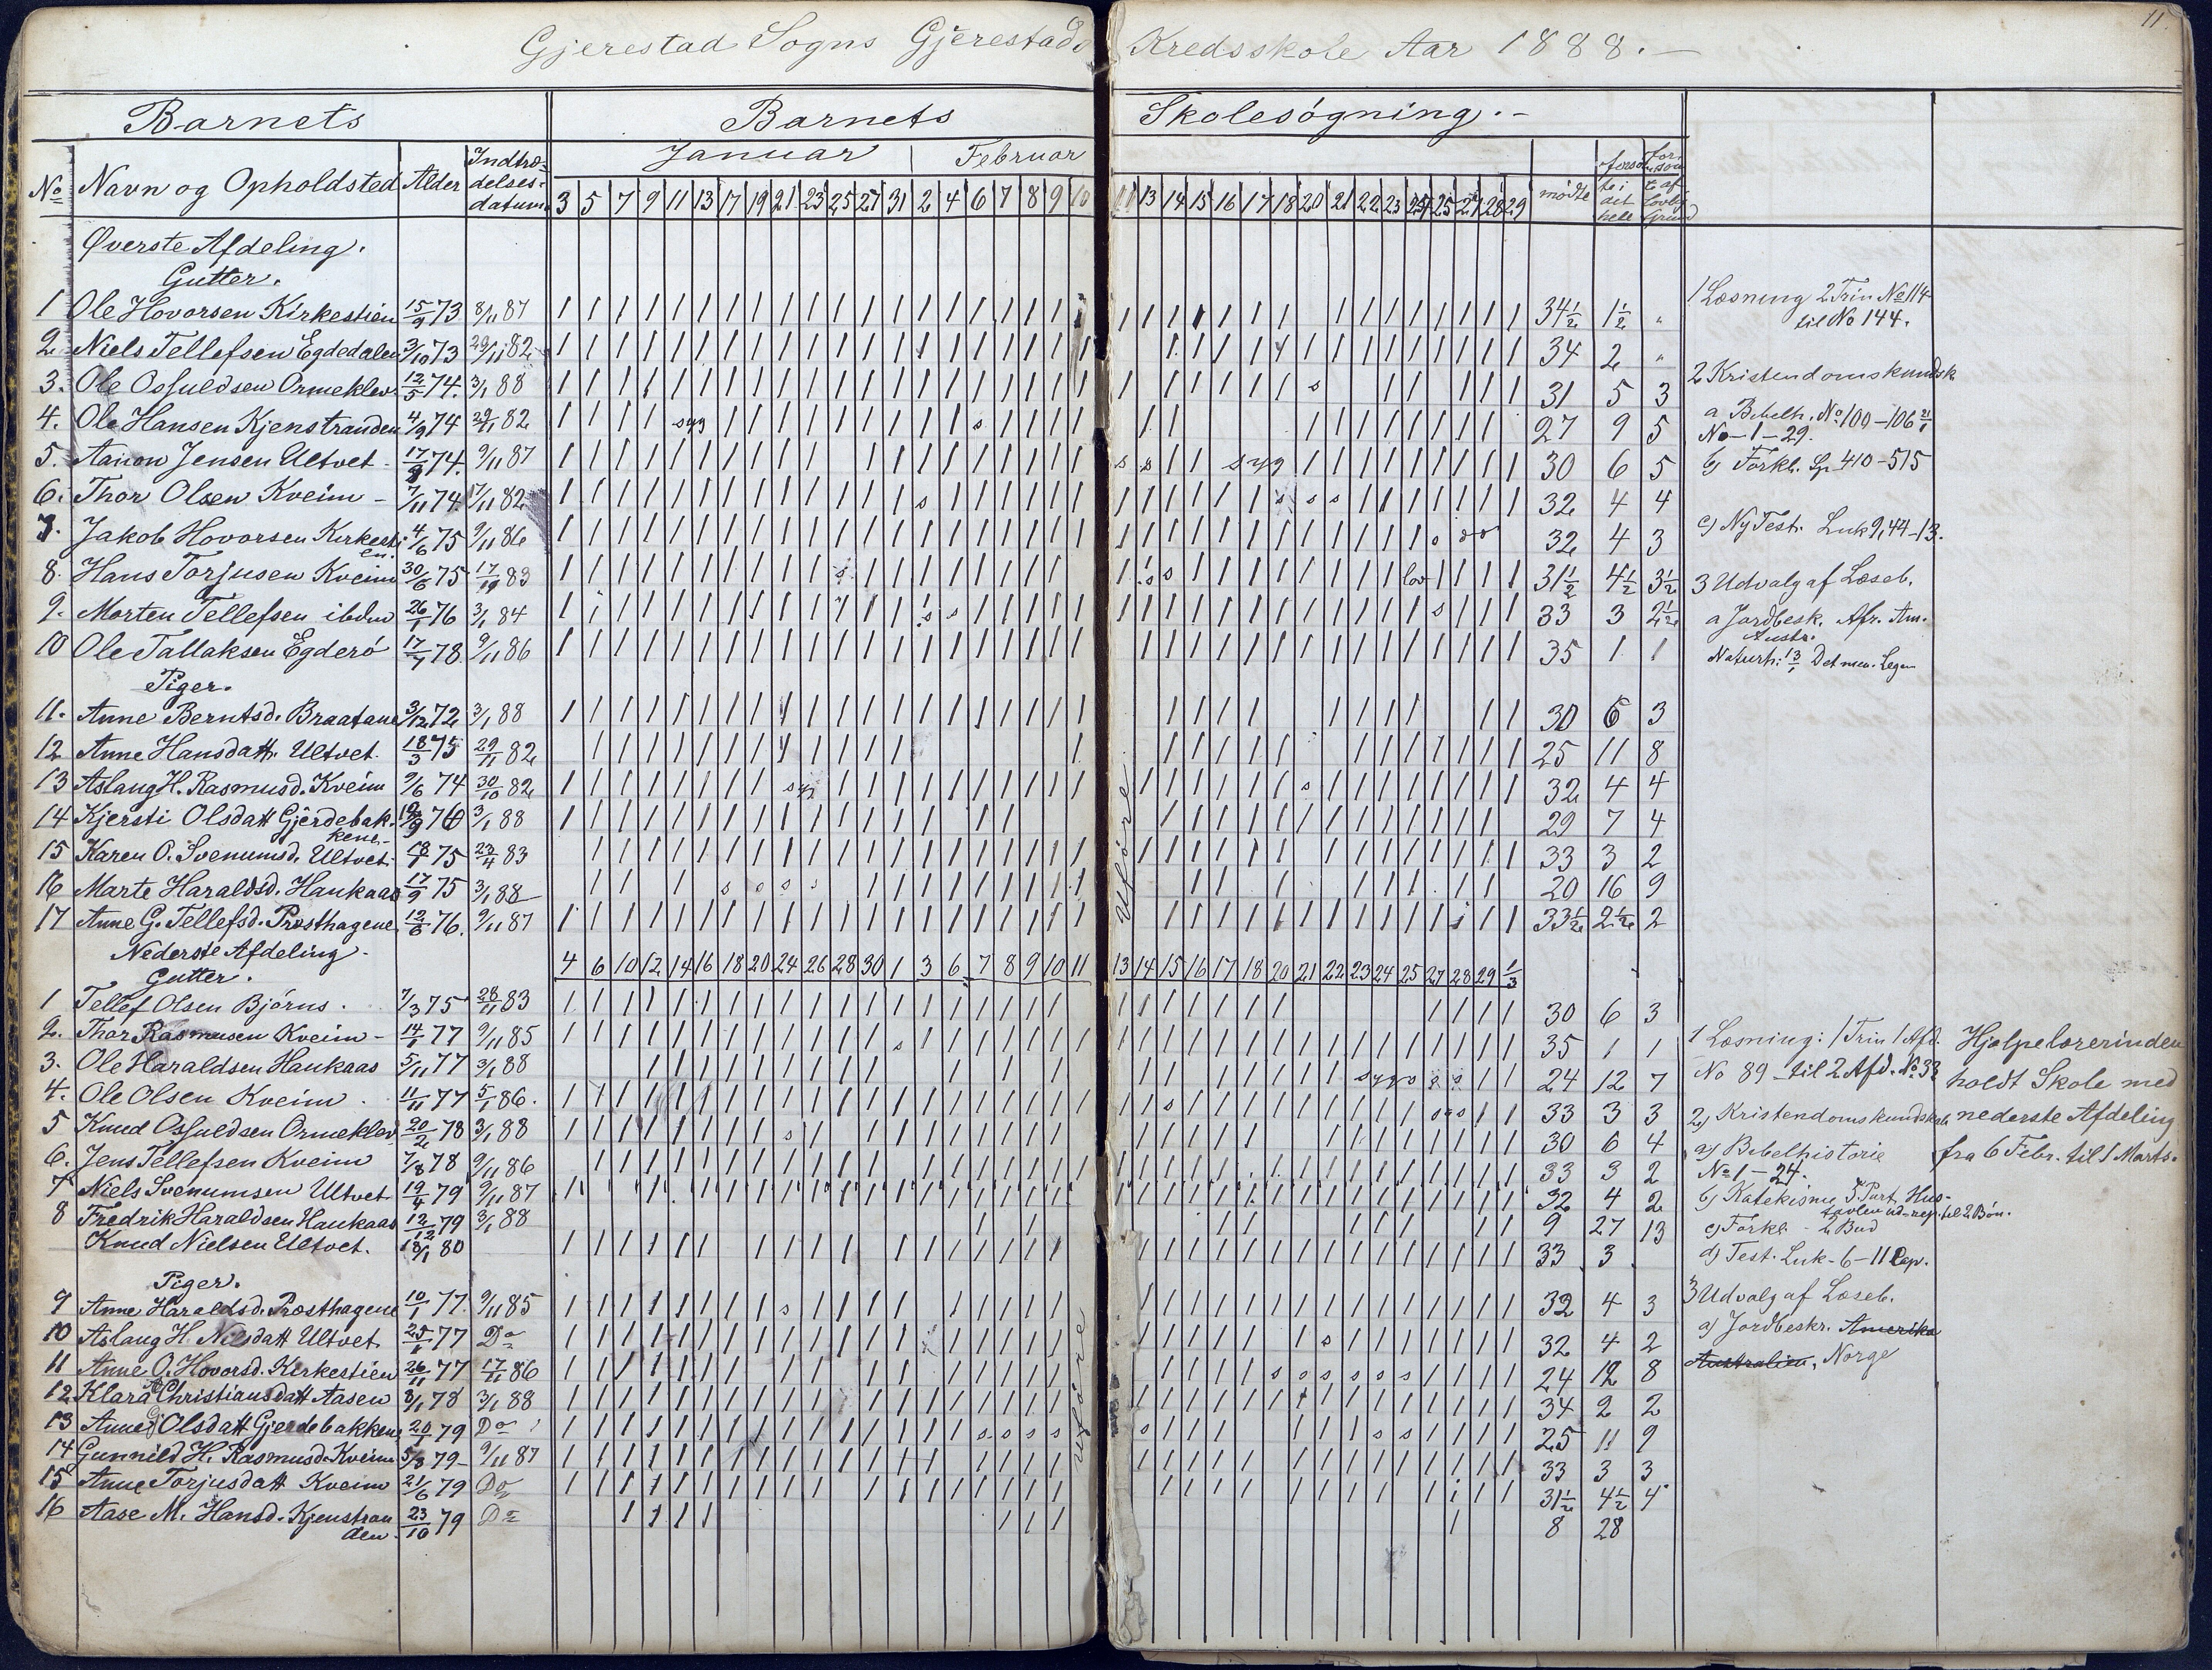 11.
Gjerestad Sogns Gjerestads Kredsskole Aar 1888.
Barnets Barnets Skolesøgning.
Januar Februar
No Navn og Opholdsted Alder Indtrædelsesdatum 3 5 7 9 11 13 17 19 21 23 25 27 31 2 4 6 7 8 9 10 11 13 14 15 16 17 18 20 21 22 23 24 25 27 28 29 mødte forsømte i det hele forsømte af lovlig Grund
Øverste Afdeling.
Gutter.
1 Ole Hovorsen Kirkestien 15/9 73 8/11 87 34½ 1½ "
2. Niels Tellefsen Egdedalen 3/10 73 29/11 82 34 2 "
3. Ole Osfuldsen Ormeklev 12/5 74. 3/1 88 s 31 5 3
4. Ole Hansen Kjenstranden 4/9 74 29/11 82 syg s 27 9 5
5. Aanon Jensen Ultvet 17/9 74. 9/11 87 s s syg 30 6 5
6. Thor Olsen Kveim - 7/11 74. 17/11 82 s s s s 32 4 4
7. Jakob Hovorsen Kirkestien. 4/6 75 9/11 86 32 4 3
8. Hans Torjusen Kveim 30/6 75 17/10 83 s s s lov 31½ 4½ 3½
9. Morten Tellefsen ibdm 26/1 76 3/1 84 s s s 33 3 2½
10 Ole Tallaksen Egderø 17/7 78. 9/11 86 35 1 1
Piger.
11. Anne Berntsd. Braatane 3/12 72 3/1 88 30 6 3
12 Anne Hansdatt. Ultvet. 18/3 75 29/11 82 25 11 8
13 Aslaug H. Rasmusd. Kveim 9/6 74 30/10 82 syg s 32 4 4
14 Kjersti Olsdatt Gjerdebakkene 19/9 76 3/1 88 29 7 4
15 Karen O. Svenumsd. Ultvet. 18/7 75 23/4 83 33 3 2
16 Marte Haraldsd. Haukaas 17/9 75 3/1 88 s s s s 20 16 9
17 Anne G. Tellefsd. Præsthagene 12/6 76. 9/11 87 33½ 2½ 2
Uføre
Nederste Afdeling.
Gutter. 4 6 10 12 14 16 18 20 24 26 28 30 1 3 6 7 8 9 10 11 13 14 15 16 17 18 20 21 22 23 24 25 27 28 29 1/3
1 Tellef Olsen Bjørns. 7/3 75 28/11 83 30 6 3
2. Thor Rasmusen Kveim - 14/1 77 9/11 85 s 35 1 1
3. Ole Haraldsen Haukaas 5/11 77 3/1 88 syg s s s 24 12 7
4. Ole Olsen Kveim. 11/11 77 5/1 86. s s s s 33 3 3
5 Knud Osfuldsen Ormeklev 20/2 78 3/1 88 s 30 6 4
6. Jens Tellefsen Kveim 7/8 78 9/11 86 33 3 2
7 Niels Svenumsen Ultvet 19/4 79 9/11 87 32 4 2
8 Fredrik Haraldsen Haukaas 12/12 79 3/1 88 9 27 13
Knud Nielsen Ultvet. 18/1 80 33 3
Piger.
9 Anne Haraldsd. Præsthagene 10/1 77. 9/11 85 s 32 4 3
10 Aslaug H. Nilsdatt Ultvet 25/1 77 Do s 32 4 2
11 Anne O. Hovorsd. Kirkestien 26/11 77 17/11 86 s s s s s s 24 12 8
12 Klara Christiansdatt Aasen 8/1 78 3/1 88 34 2 2
13 Anne Olsdatt Gjerdebakkene 20/1 79 Do s s s s s s s 25 11 9
14 Gunnild H. Rasmusd. Kveim 5/8 79 - 9/11 87 33 3 3
15 Anne Torjusdatt Kveim 21/6 79 Do 31½ 4½ 4
16 Aase M. Hansd. Kjenstranden. 23/10 79 Do 8 28
Uføre
1 Læsning 2 Trin No 114
til No 144.
2 Kristendomskundsk.
a Bibelh. No. 100-106 21/1
No-1-29.
b) Forkl. Sp 410-515
c) Ny Test. Luk 9,44-13.
3 Udvalg af Læseb.
a Jordbesk. Afr. Am.
Austr.
Naturh: 13/1 Det men. Legem
1 Læsning: 1 Trin 1 Afd.
No 89 til 2 Afd. No 33
2) Kristendomskundskab
a) Bibelhistorie
No 1-24.
b) Katekisme 5. Part, Hus-
tavlen ud-rep. til 2 Bøn.
c) Forkl. - 2 Bud
d) Test. Luk-6-11 Cap.
3 Udvalg af Læseb.
a) Jordbeskr. Amerika
Australien, Norge
Hjælpelærerinden
holdt Skole med
nederste Afdeling
fra 6 Febr. til 1 Marts.